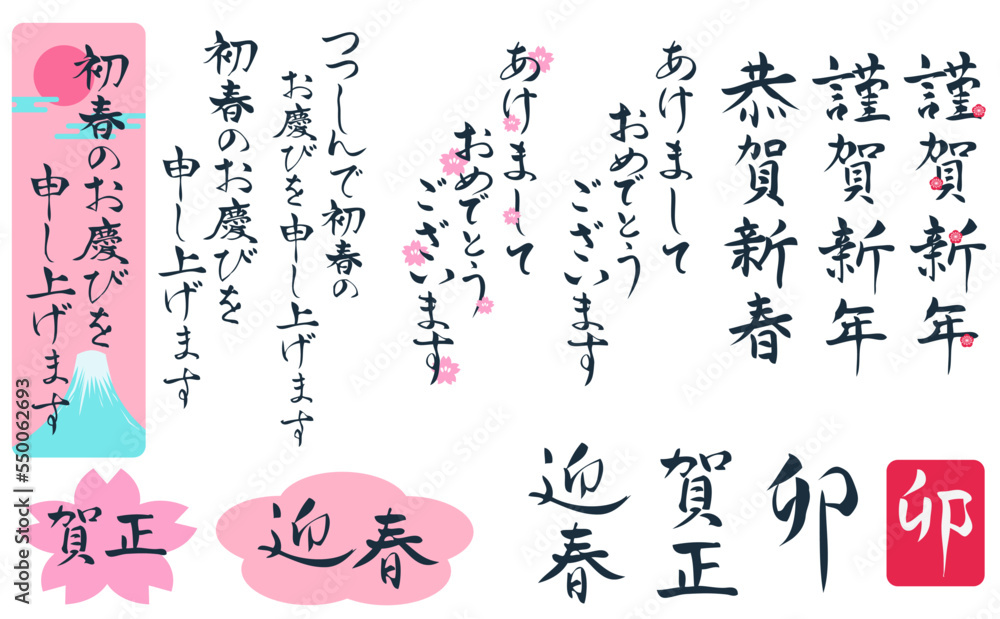 謹賀新年
謹賀新年
恭賀新春
あけまして
おめでとう
ございます
あけまして
おめでとう
ございます
つつしんで初春の
お慶びを申し上げます
初春のお慶びを
申し上げます
初春のお慶びを
申し上げます
卯
卯
賀正
迎春
迎春
賀正
Adobe Stock | #550062693
Adobe Stock